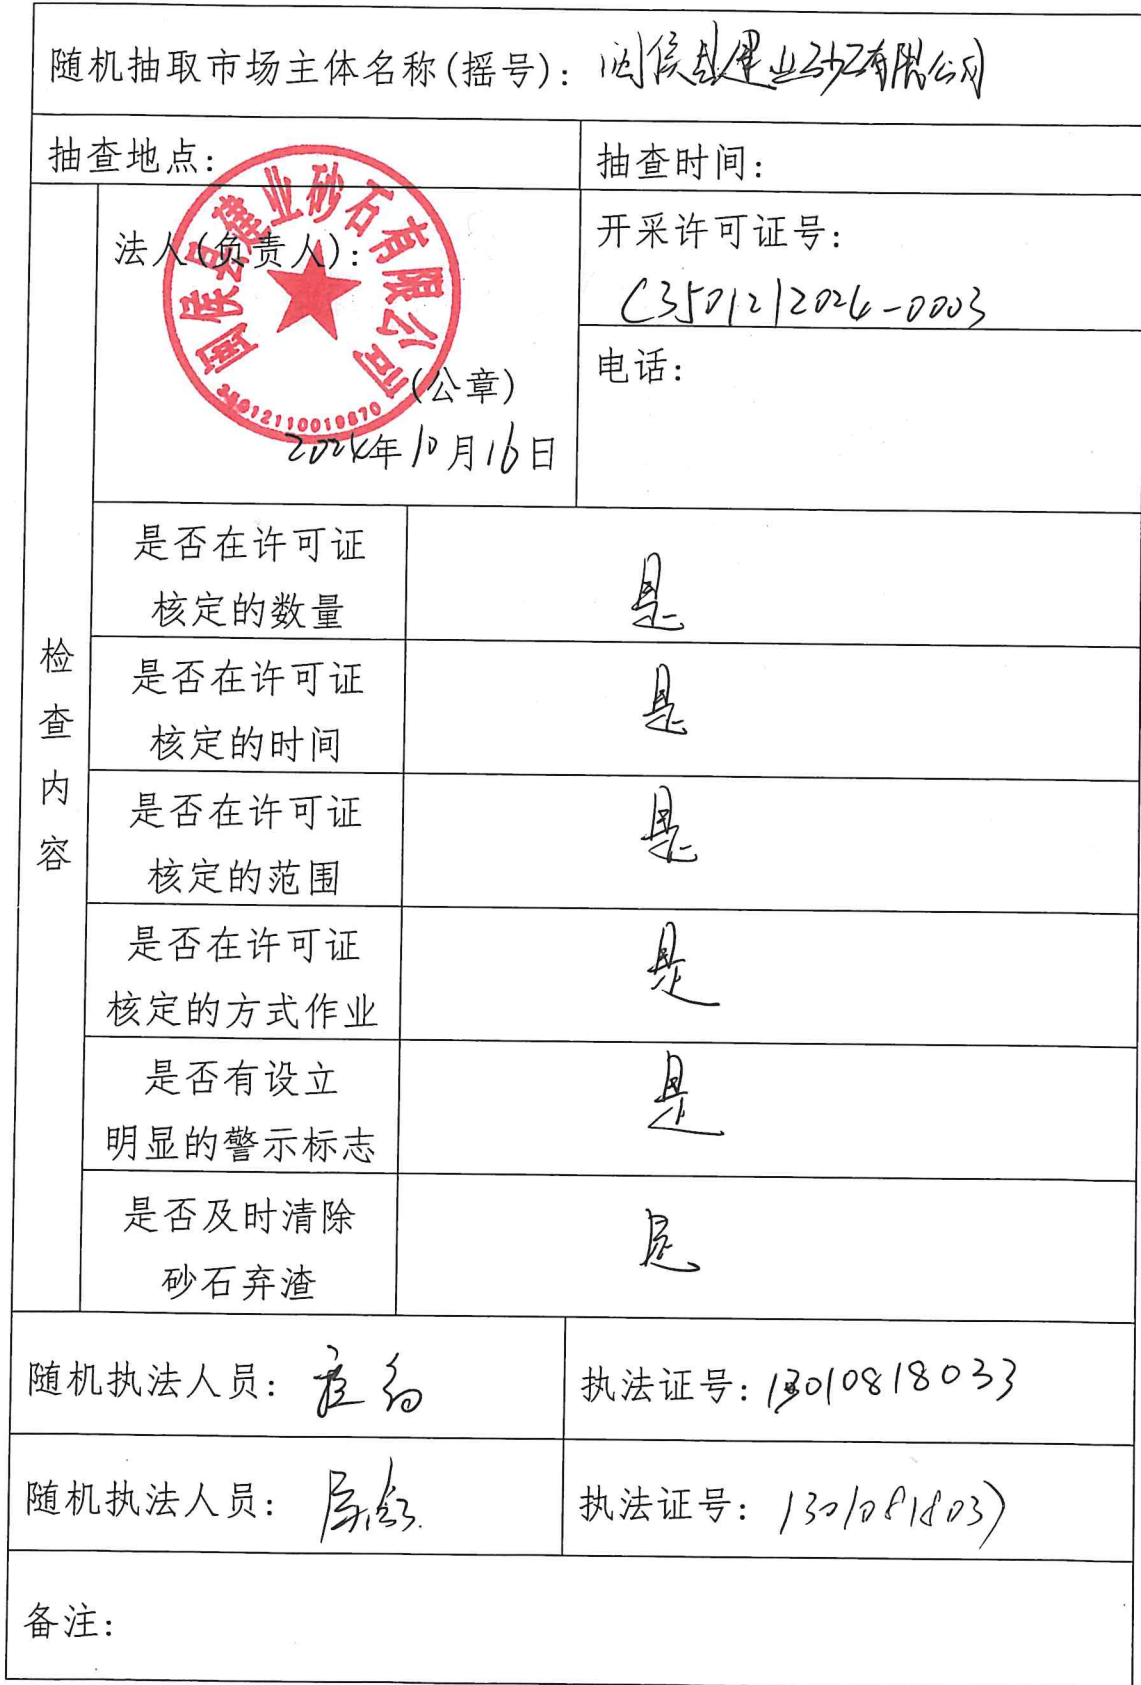 随机抽取市场主体名称(摇号)：闽侯县建业砂石有限公司
抽查地点：
抽查时间：
检查内容
法人(负责人)：
闽侯县建业砂石有限公司
(公章)
2024年10月16日
开采许可证号：
C3501212024-0003
电话：
是否在许可证
核定的数量
是
是否在许可证
核定的时间
是
是否在许可证
核定的范围
是
是否在许可证
核定的方式作业
是
是否有设立
明显的警示标志
是
是否及时清除
砂石弃渣
是
随机执法人员：
执法证号：13010818033
随机执法人员：
执法证号：13010818037
备注：